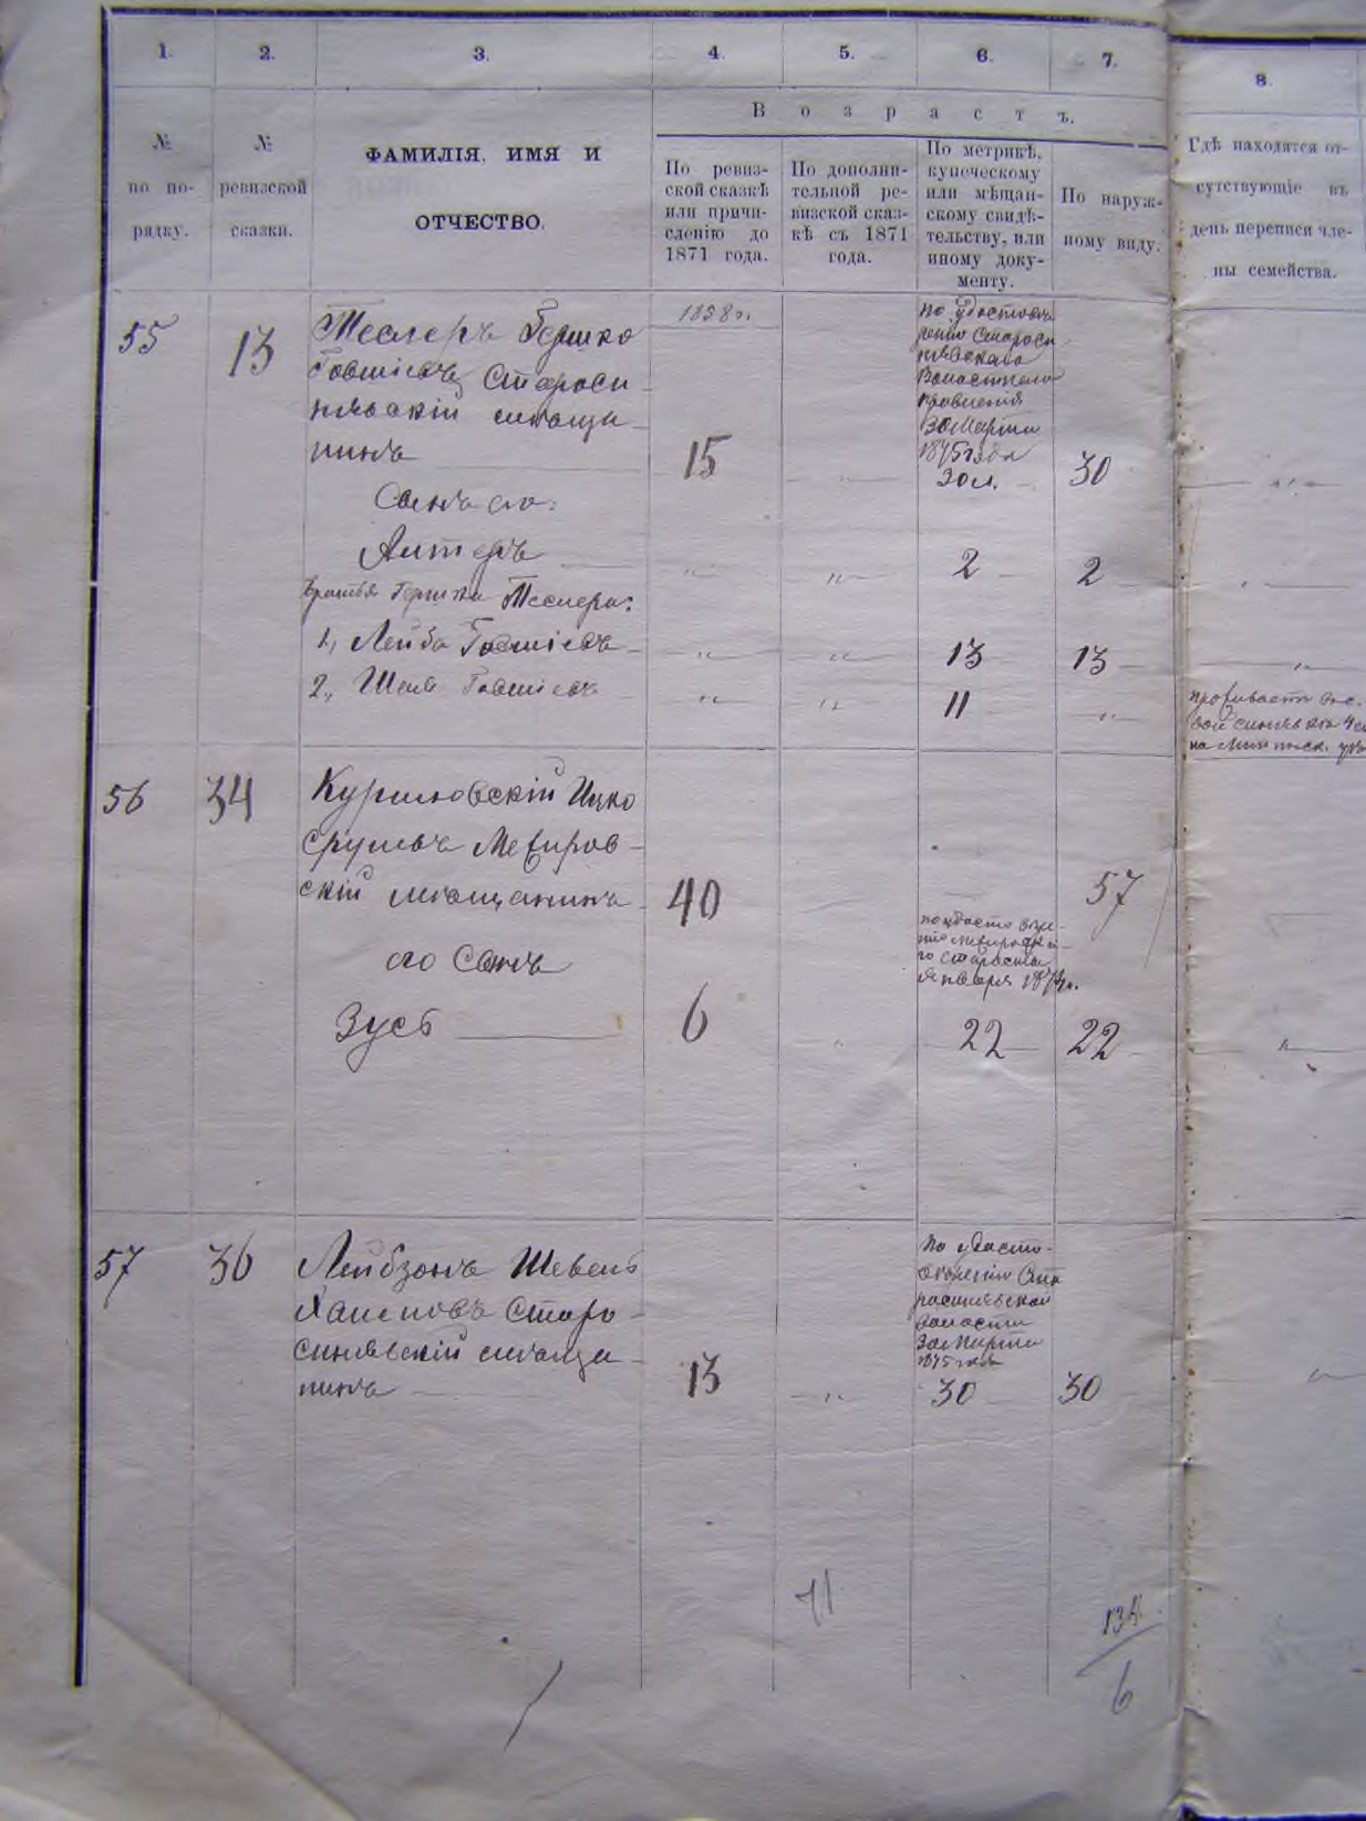 1. 2. 3. 4. 5. 6. 7. 8.
Возрастъ.
№ по по-
рядку.
№
ревизской
сказки.
ФАМИЛІЯ, ИМЯ И
ОТЧЕСТВО.
По ревиз-
ской сказкѣ
или причи-
сленію до
1871 года.
По дополни-
тельной ре-
визской сказ-
кѣ съ 1871
года.
По метрикѣ,
купеческому
или мѣщан-
скому свидѣ-
тельству, или
иному доку-
менту.
По наруж-
ному виду.
Гдѣ находятся от-
сутствующіе въ
день переписи чле-
ны семейства.
55 13 Теслеръ Гершко
Староси
нявскій мѣща-
нинъ
1858 г.
15
по удостовѣ
ренію Староси
нявскаго
Волостнаго
правленія
30 Марта
1875 года
30
Сынъ его:
2 2
Братья Гершка Теслера:
1., Лейба 13 13
2., 11
проживаетъ
56 34 Куриловскій Ицко
Срулевъ Межиров-
скій мѣщанинъ 40 57
его Сынъ
Зусь 6 22 22
57 36 Лейбзонъ Шевель
Старо-
синявскій мѣща-
нинъ 13
По удосто-
вѣренію Ста
росинявской
волости
30 Марта
1875 года
30 30
6